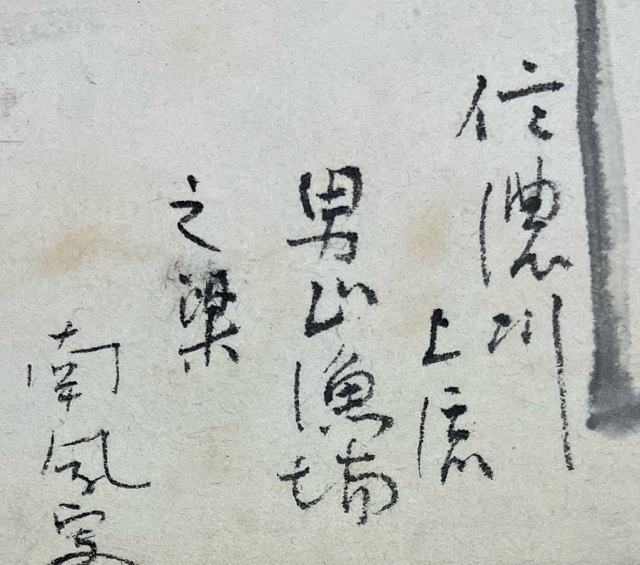 信濃川
上流
男山漁場
之梁
南風